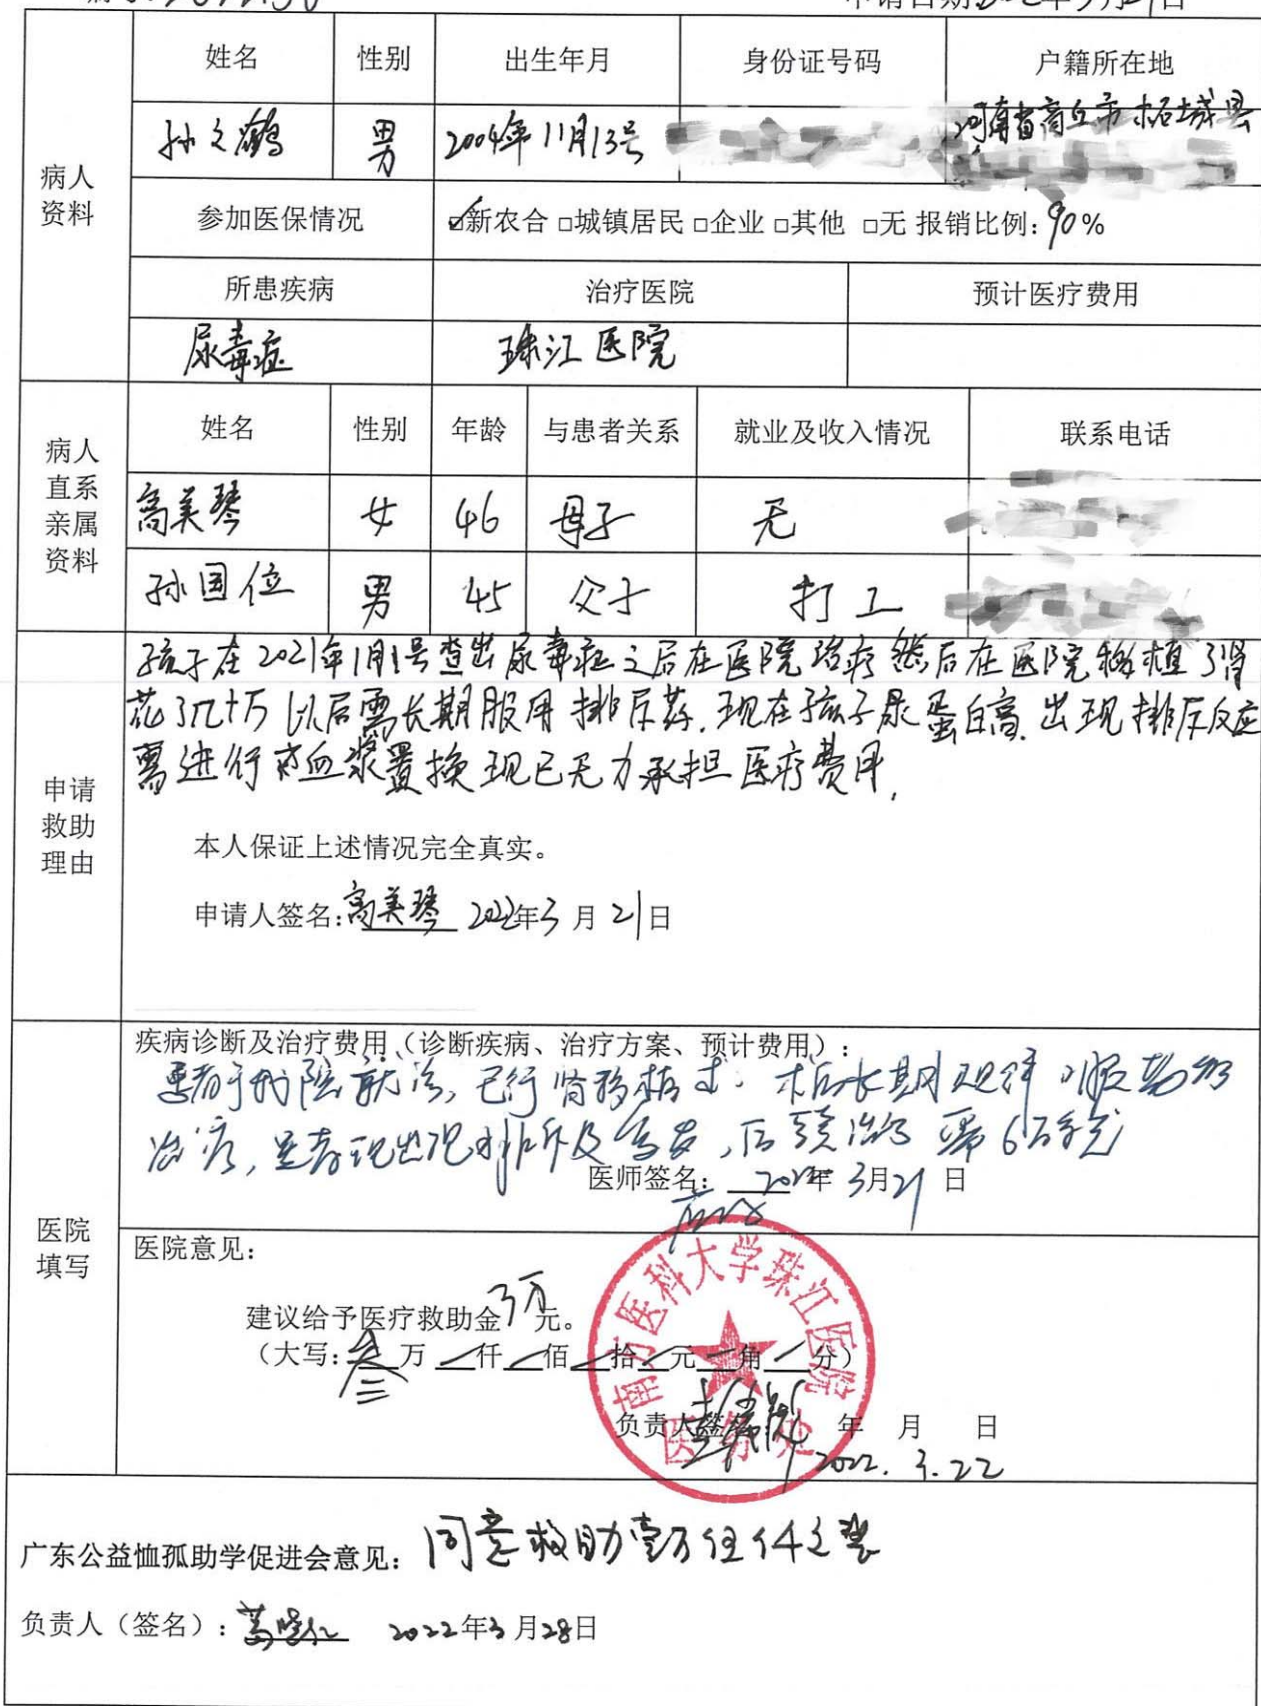 申请日期 年3月21日
姓名 性别 出生年月 身份证号码 户籍所在地
孙之鹤 男 2004年11月13号 河南省商丘市柘城县
病人资料
参加医保情况 ☑新农合 □城镇居民 □企业 □其他 □无 报销比例：90%
所患疾病 治疗医院 预计医疗费用
尿毒症 珠江医院
病人直系亲属资料
姓名 性别 年龄 与患者关系 就业及收入情况 联系电话
高美琴 女 46 母子 无
孙国位 男 45 父子 打工
申请救助理由
孩子在2021年1月1号查出尿毒症之后在医院治疗然后在医院移植了肾
花了几十万以后需长期服用排斥药.现在孩子尿蛋白高.出现排斥反应
需进行 血浆置换现已无力承担医疗费用,
本人保证上述情况完全真实。
申请人签名：高美琴 2022年3月21日
医院填写
疾病诊断及治疗费用（诊断疾病、治疗方案、预计费用）：
患者于我院就诊，已行肾移植术，术后长期规律口服药物
治疗，患者现出现排斥反应 ，后续治疗需6万余元
医师签名： 2022年3月21日
医院意见：
建议给予医疗救助金3万元。
（大写：叁万 仟 佰 拾 元 角 分）
南方医科大学珠江医院
医务处
负责人签 年 月 日
2022.3.22
广东公益恤孤助学促进会意见：同意救助壹万伍仟元整
负责人（签名）： 2022年3月28日